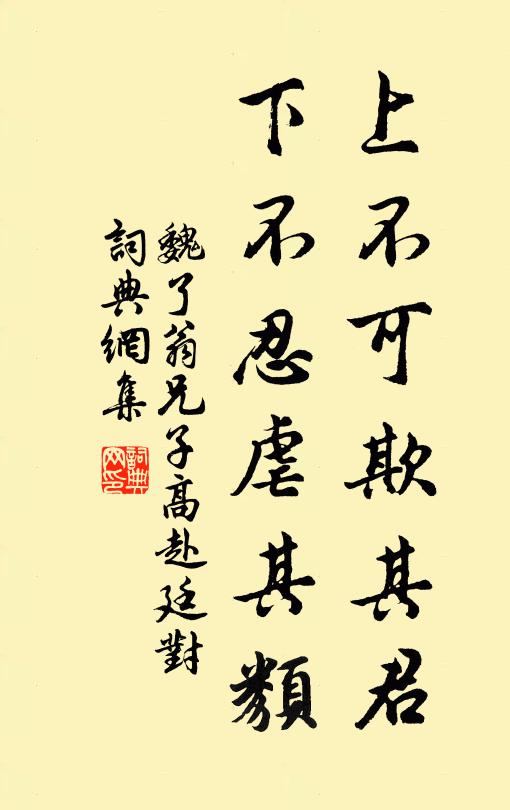 上不可欺其君
下不忍虐其類
魏了翁兄子高赴廷對
詞典網集
詞典網印